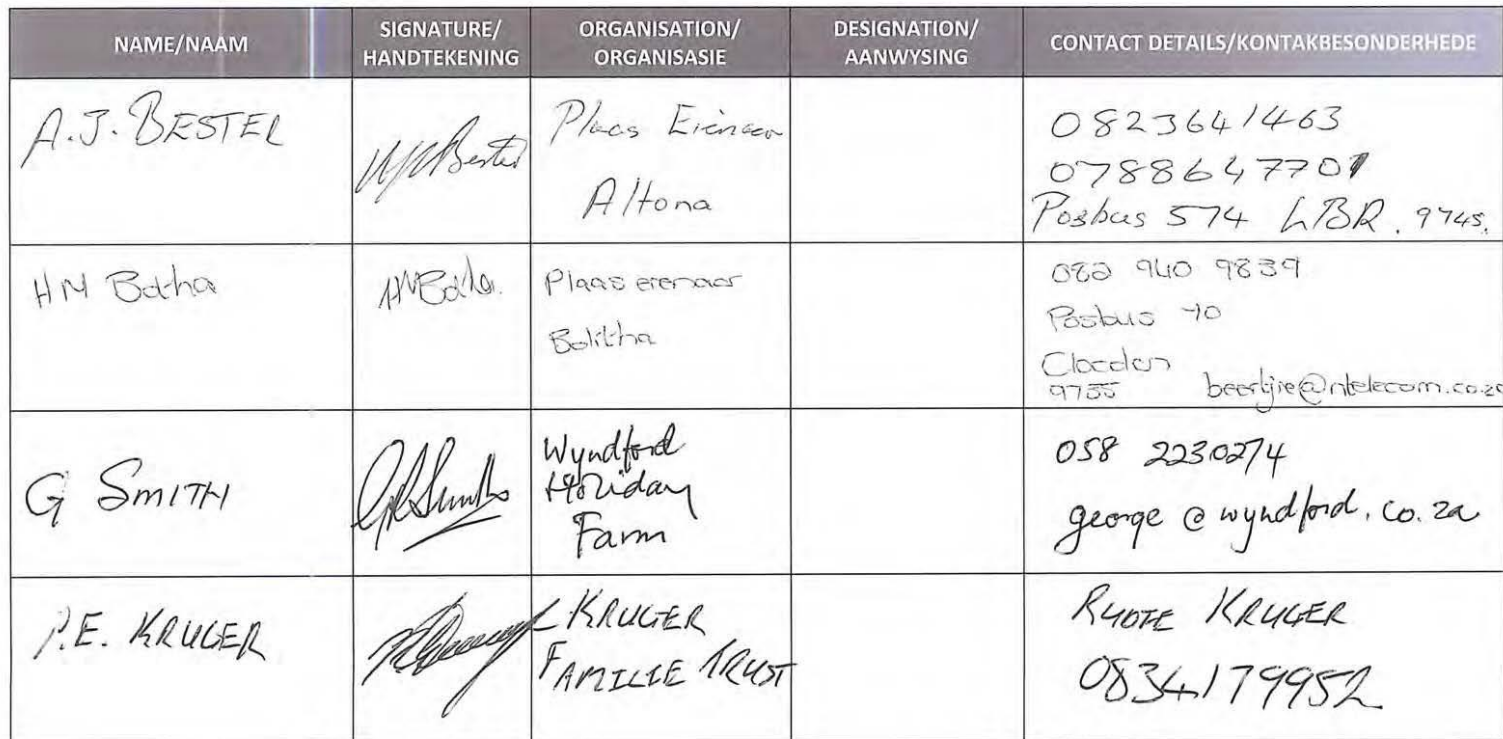 NAME/NAAM
SIGNATURE/
HANDTEKENING
ORGANISATION/
ORGANISASIE
DESIGNATION/
AANWYSING
CONTACT DETAILS/KONTAKBESONDERHEDE
A.J. BESTER
Bester
Plaas Eienaar
Altona
0823641463
0788647701
Posbus 574 LBR. 9745.
HM Botha
HMBotha.
Plaas eienaar
Bolitha
082 940 9839
Posbus 70
Clocolan
9735
@ntelecom.co.za
G SMITH
Wyndford
Holiday
Farm
058 2230274
george@wyndford.co.za
P.E. KRUGER
KRUGER
FAMILIE TRUST
KRUGER
0834179952